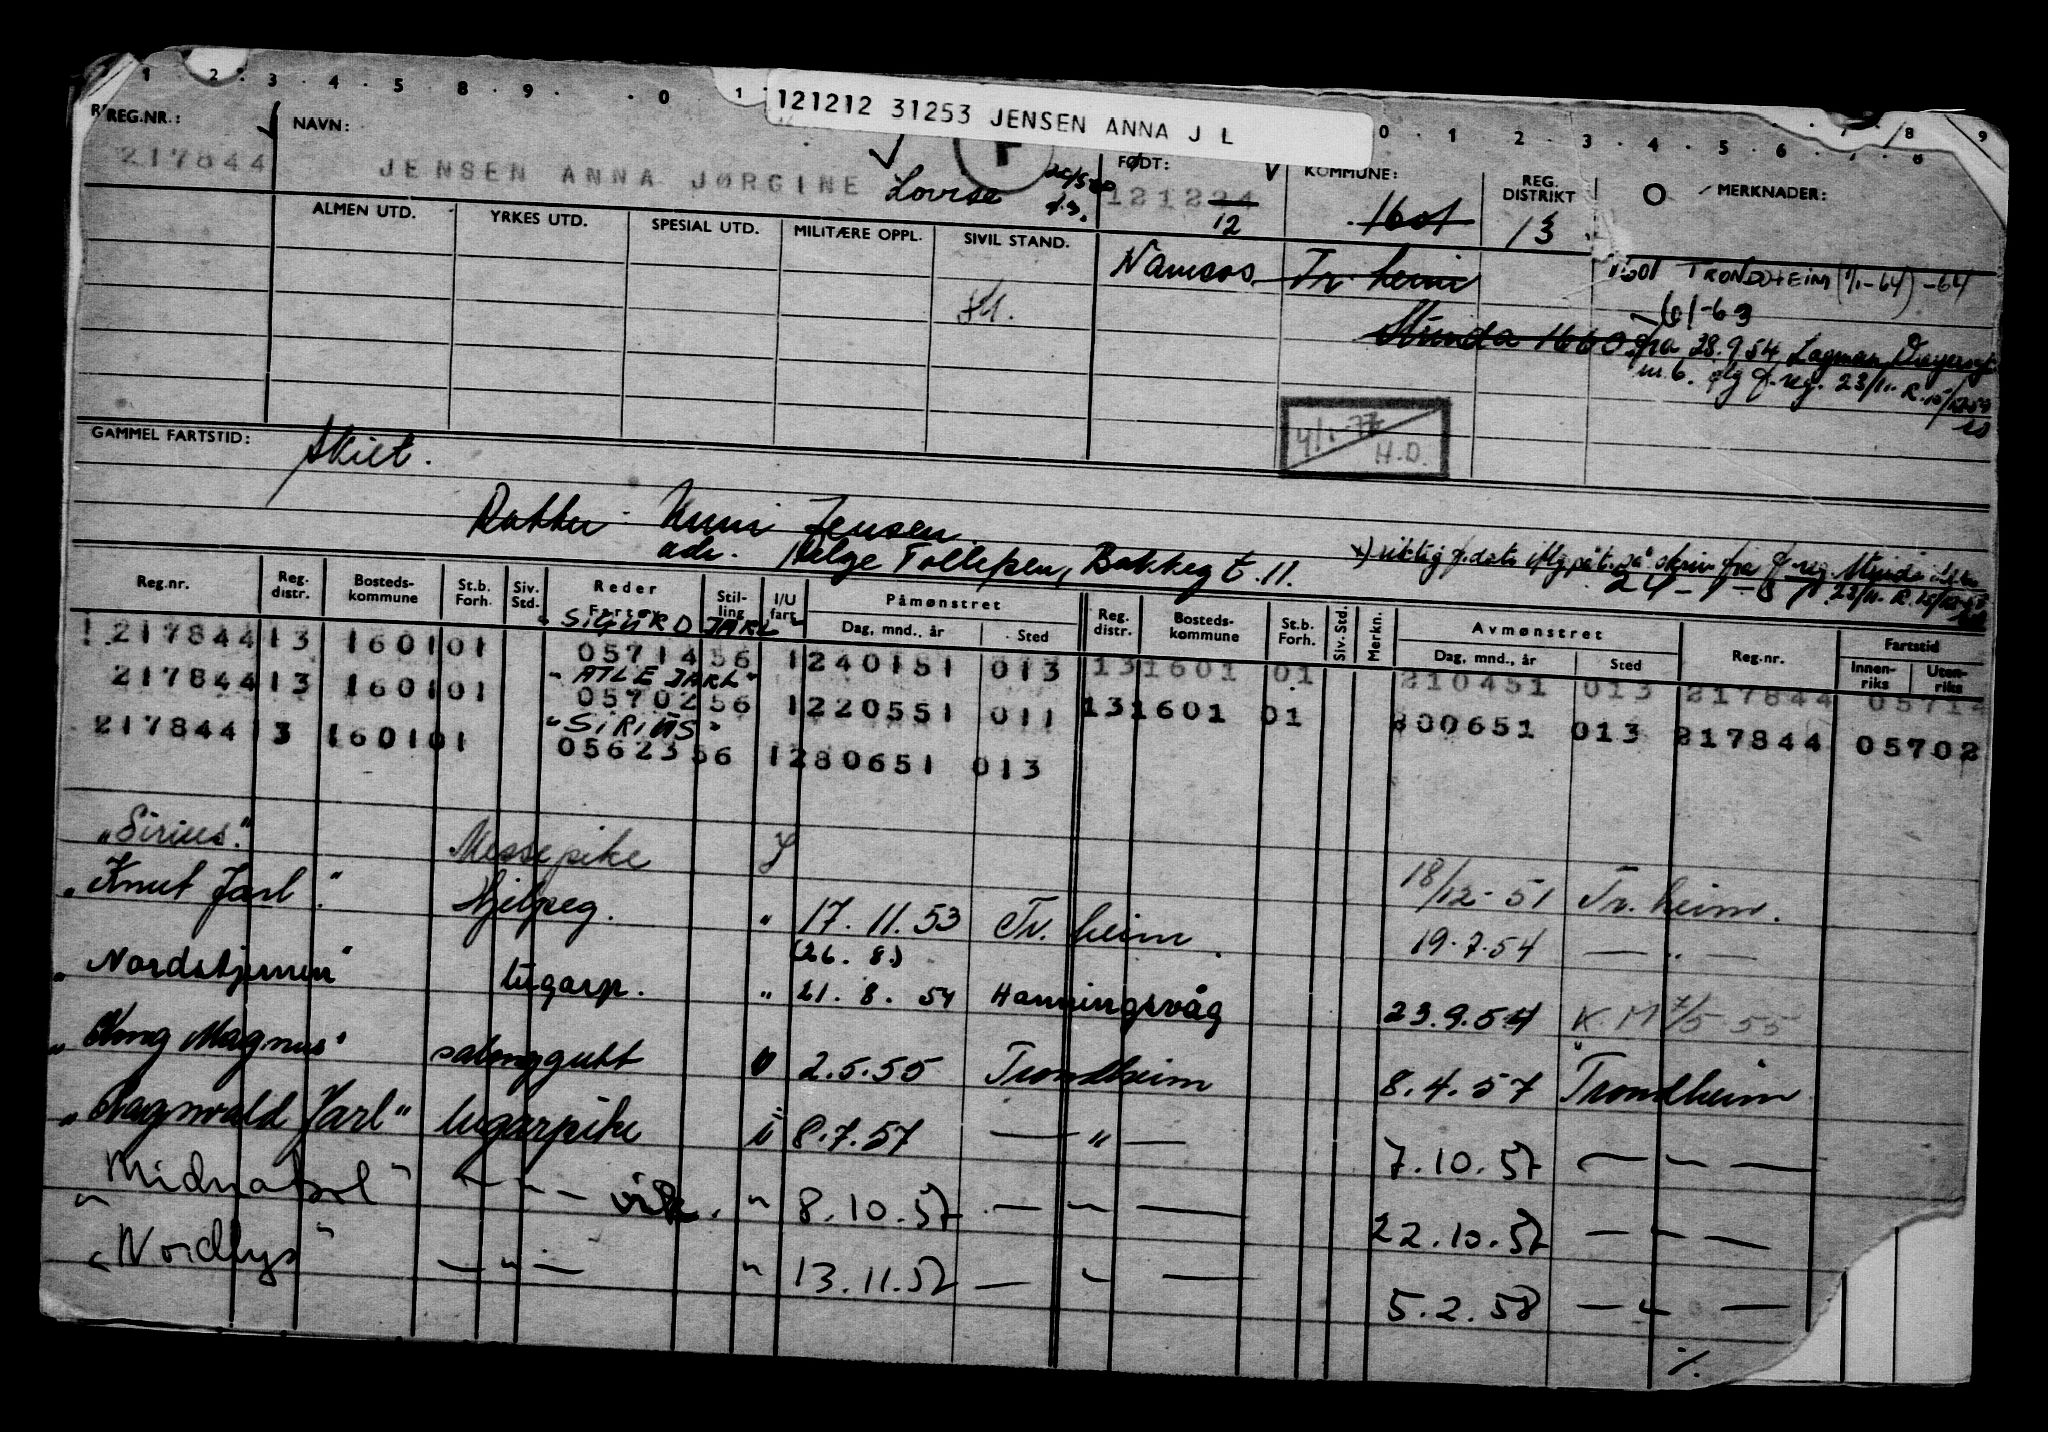 1 2 3 4 5 8 9 0 1 0 1 2 3 4 5 6 7 8 9
121212 31253 JENSEN ANNA J L
REG.NR.: NAVN: FØDT: KOMMUNE: REG. DISTRIKT MERKNADER:
217844 JENSEN ANNA JØRGINE Lovise 121224 1601 13
12
ALMEN UTD. YRKES UTD. SPESIAL UTD. MILITÆRE OPPL. SIVIL STAND.
Namsos Tr.heim 1601 TRONDHEIM (1/1-64) -64
61-63
Strinda 1660 fra 28.9.54 Lagman
m.6. flg f.reg. 23/11. R.
4/1-77 H.O.
GAMMEL FARTSTID: Skilt.
Datter: Unni Jensen
adr. Helge Tollefsen, Bakkegt. 11.
riktig f.dato iflg f.reg. Strinda
24-9-57
Reg.nr. Reg. distr. Bosteds- kommune St.b. Forh. Siv. Std. Reder Fartøy Stil- ling I/U fart Påmønstret Dag, mnd., år Sted Reg. distr. Bosteds- kommune St.b. Forh. Siv. Std. Merkn. Avmønstret Dag, mnd., år Sted Reg.nr. Fartstid Innen- riks Uten- riks
"SIGURD JARL"
217844 13 1601 01 05714 56 1 240151 013 13 1601 01 210451 013 217844 05714
"ATLE JARL"
217844 13 1601 01 05702 56 1 220551 011 13 1601 01 300651 013 217844 05702
"SIRIUS"
217844 13 1601 01 05623 56 1 280651 013
"Sirius." Messepike 18/12-51 Tr.heim.
"Knut Jarl". Hjelpeg. " 17.11.53 Tr.heim. 19.7.54 — " —
(26. 8.)
"Nordstjernen" lugarp. " 21.8.54 Honningsvåg 23.9.54 K.M 7/5-55
"Kong Magnus" salonggutt 2.5.55 Trondheim 8.4.57 Trondheim
"Ragnvald Jarl" lugarpike i 8.7.57 — " — 7.10.57 — " —
"Midnatsol" — " — vik. " 8.10.57 — " — 22.10.57 — " —
"Nordlys" — " — " 13.11.57 — " — 5.2.58 — " —